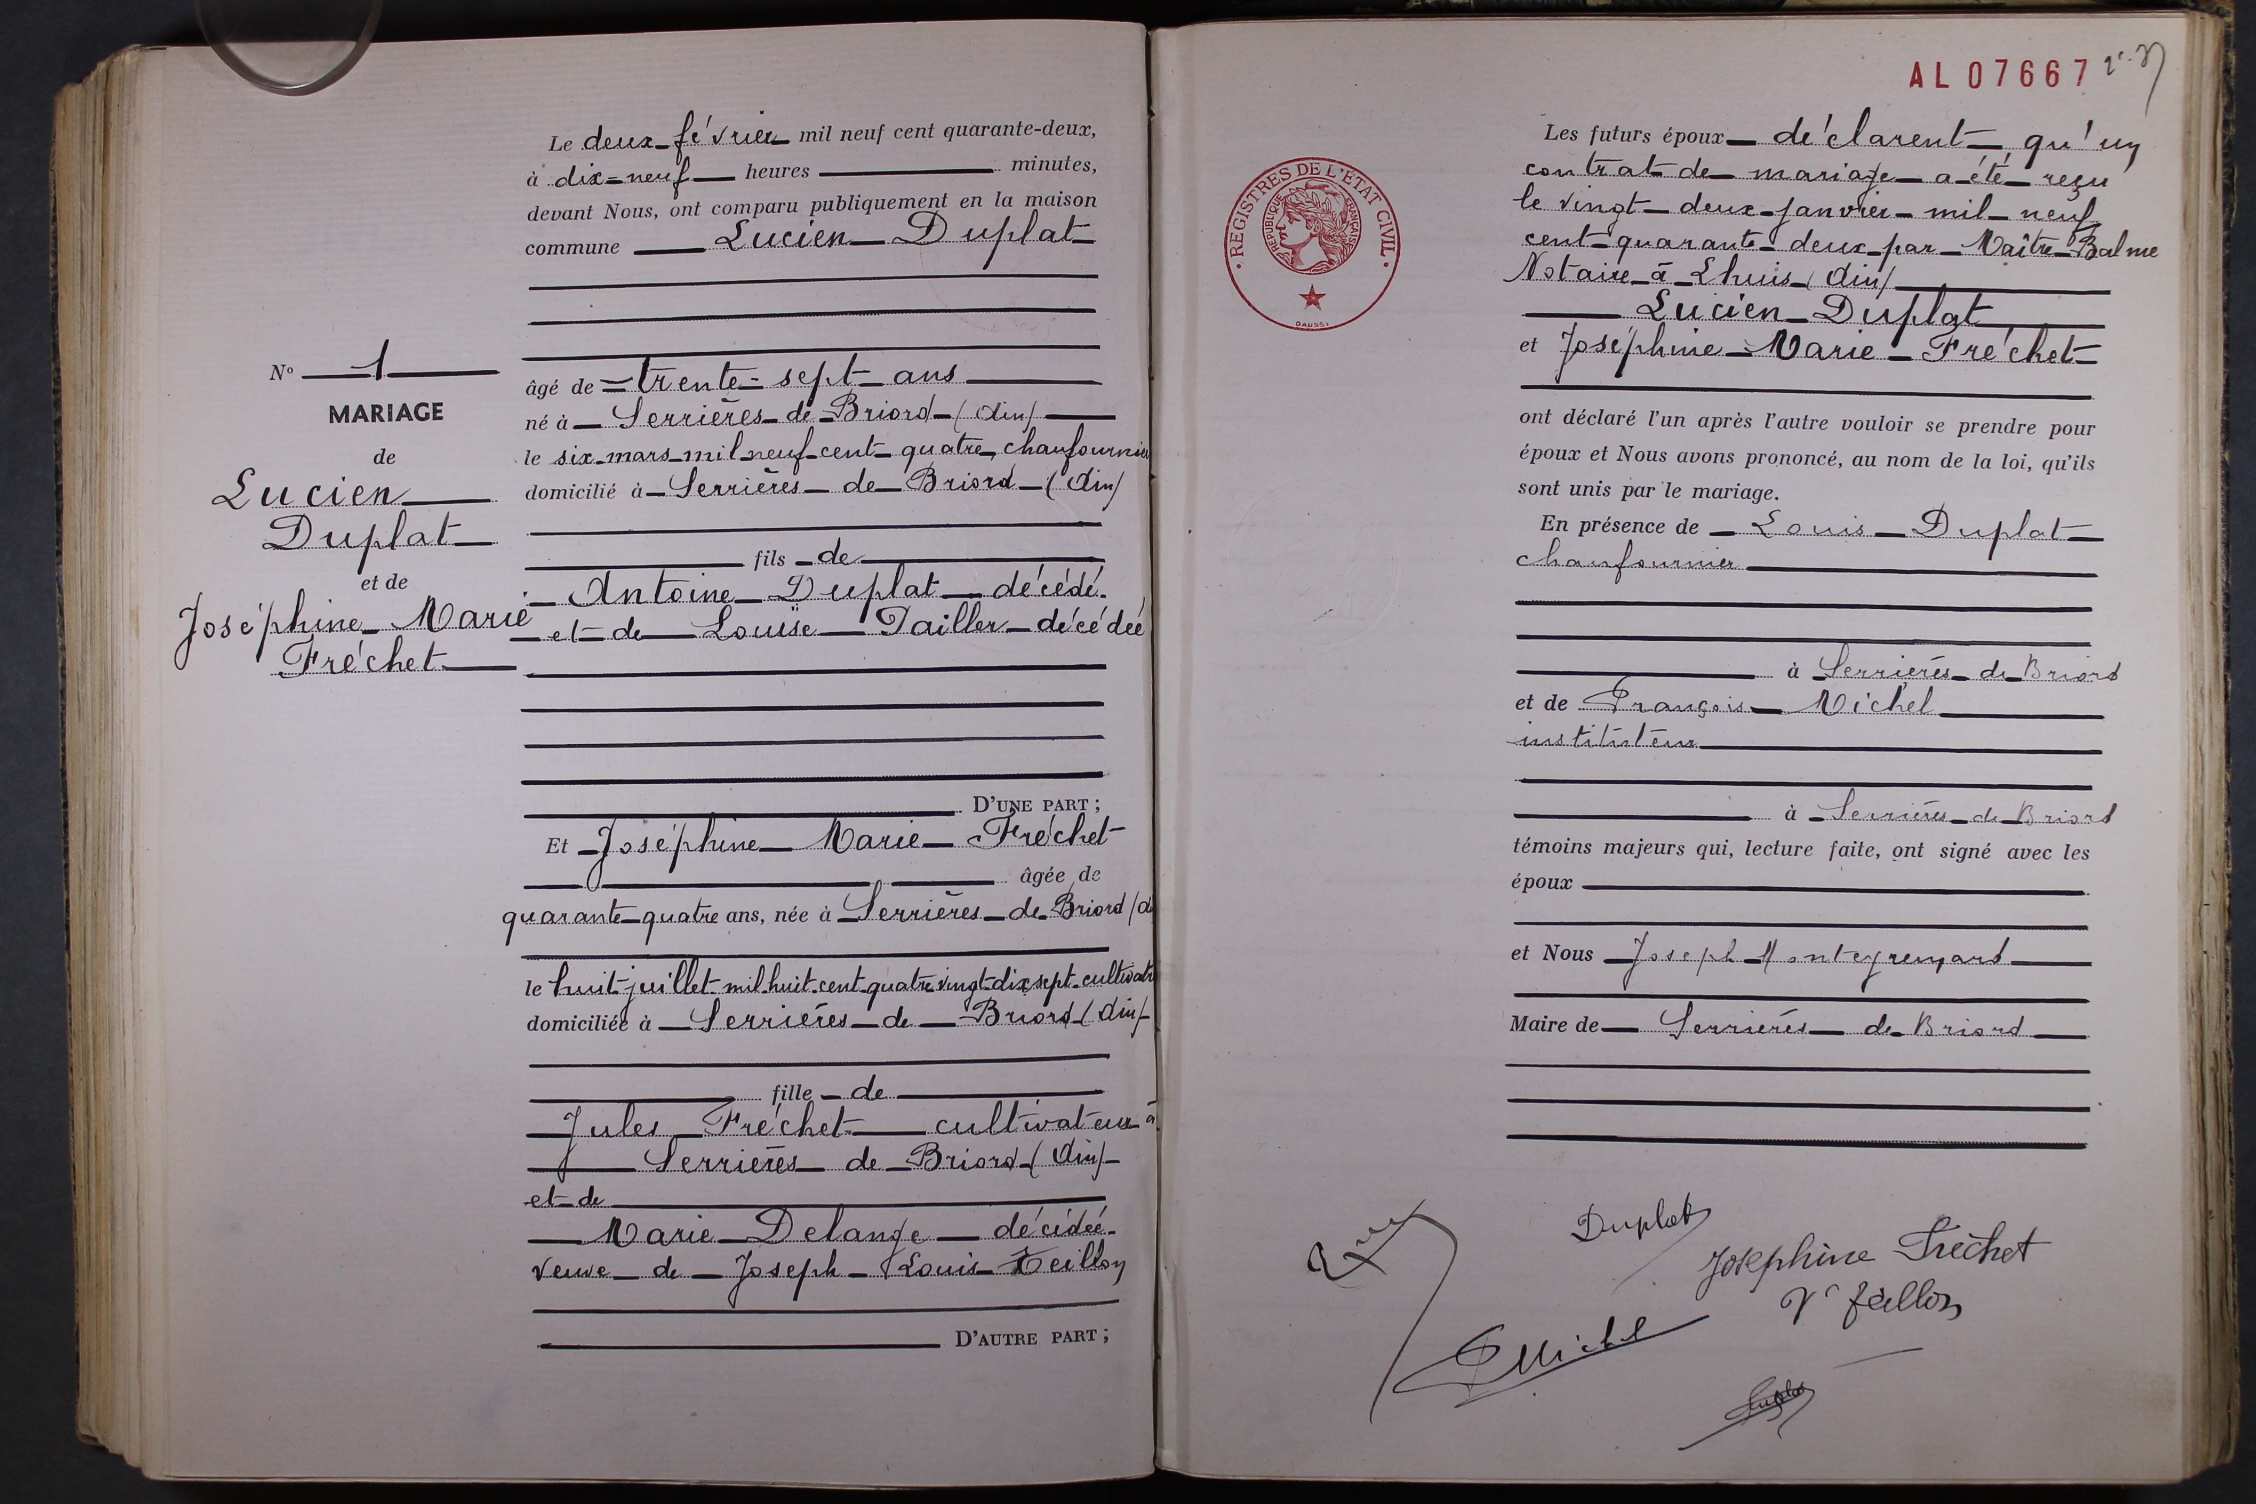 Le deux février mil neuf cent quarante-deux,
à dix-neuf heures minutes,
devant Nous, ont comparu publiquement en la maison
commune Lucien Duplat
N° 1
MARIAGE
de
Lucien
Duplat
et de
Joséphine Marie
Fréchet
âgé de trente-sept ans
né à Serrières de Briord (Ain)
le six mars mil neuf cent quatre, chaufournier
domicilié à Serrières de Briord (Ain)
fils de
Antoine Duplat décédé
et de Louise Tailler décédée
D'UNE PART ;
Et Joséphine Marie Fréchet
âgée de
quarante-quatre ans, née à Serrières de Briord
le huit juillet mil huit cent quatre vingt dix sept
domiciliée à Serrières de Briord (Ain)
fille de
Jules Fréchet cultivateur à
Serrières de Briord (Ain)
et de
Marie Delange décédée
veuve de Joseph Louis Teillon
D'AUTRE PART ;
AL 07667
REGISTRES DE L'ÉTAT CIVIL
RÉPUBLIQUE FRANÇAISE
Les futurs époux déclarent qu'un
contrat de mariage a été reçu
le vingt-deux janvier mil neuf
cent quarante deux par Maître Balme
Notaire à Lhuis (Ain)
Lucien Duplat
et Joséphine Marie Fréchet
ont déclaré l'un après l'autre vouloir se prendre pour
époux et Nous avons prononcé, au nom de la loi, qu'ils
sont unis par le mariage.
En présence de Louis Duplat
chaufournier
à Serrières de Briord
et de François Michel
instituteur
à Serrières de Briord
témoins majeurs qui, lecture faite, ont signé avec les
époux
et Nous Joseph
Maire de Serrières de Briord
Duplat
Joséphine Fréchet
Vve Teillon
Michel